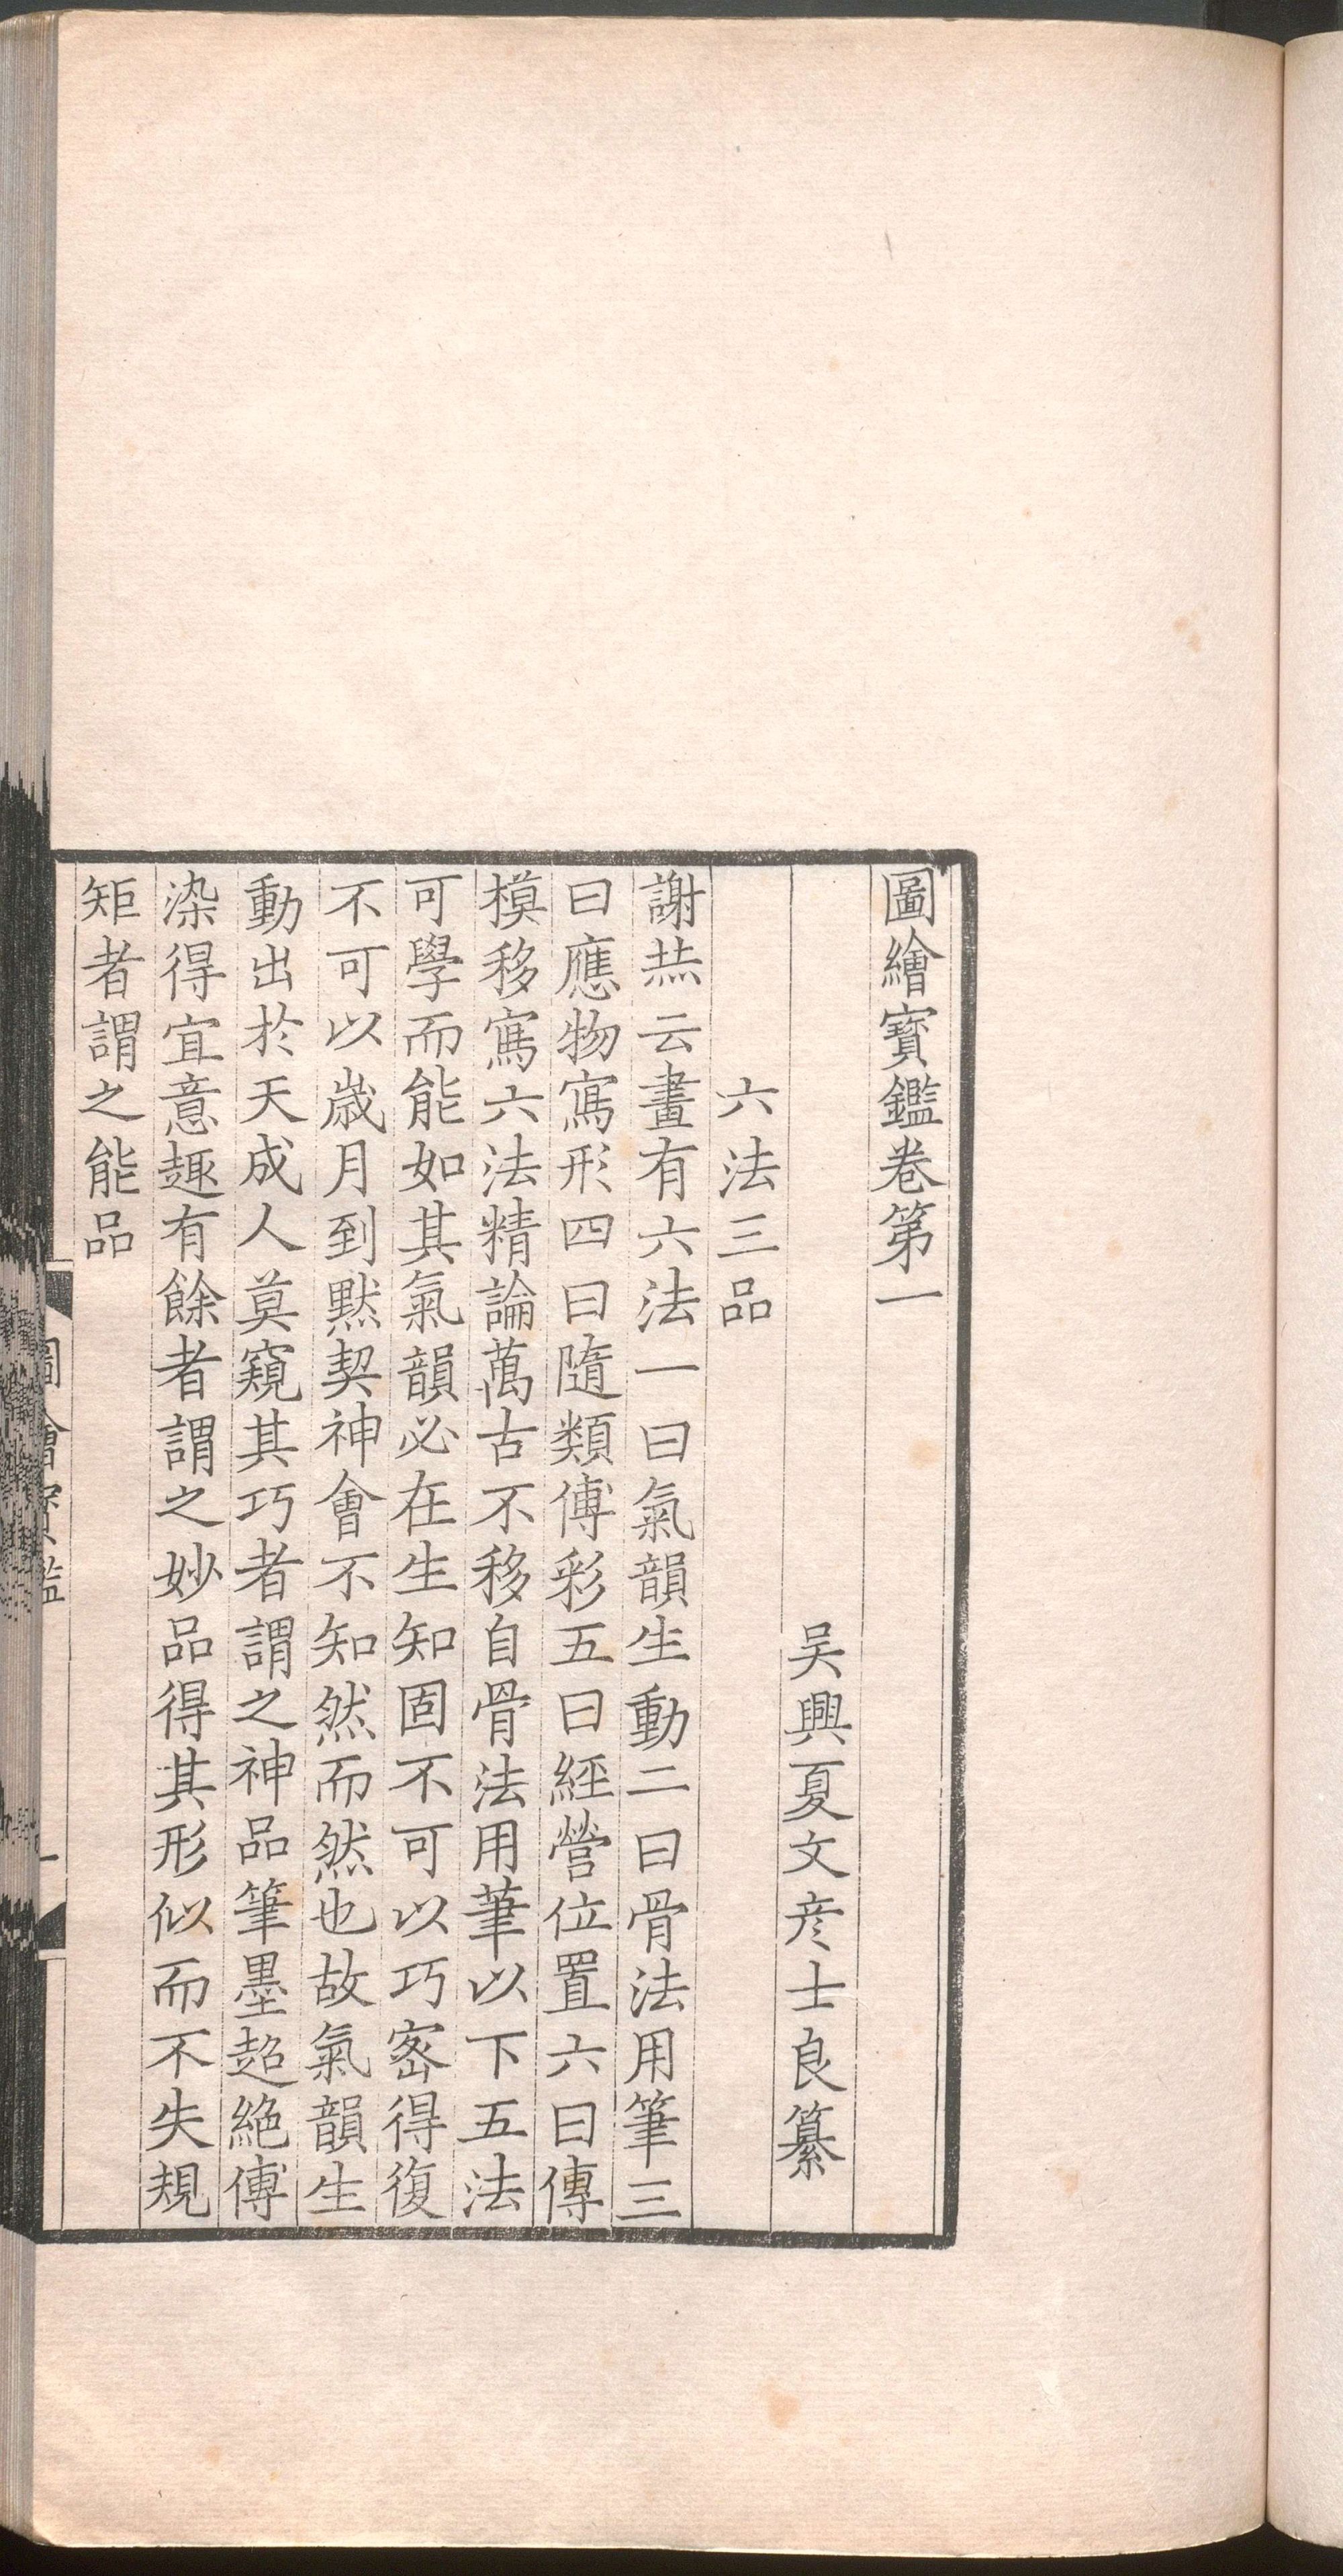 圖繪寶鑑卷第一
吴興夏文彦士良纂
六法三品
謝赫云畫有六法一曰氣韻生動二曰骨法用筆三
曰應物寫形四曰隨類傅彩五曰經營位置六曰傳
模移寫六法精論萬古不移自骨法用筆以下五法
可學而能如其氣韻必在生知固不可以巧密得復
不可以歲月到默契神會不知然而然也故氣韻生
動出於天成人莫窺其巧者謂之神品筆墨超絶傅
染得宜意趣有餘者謂之妙品得其形似而不失規
矩者謂之能品
圖繪寶鑑
一